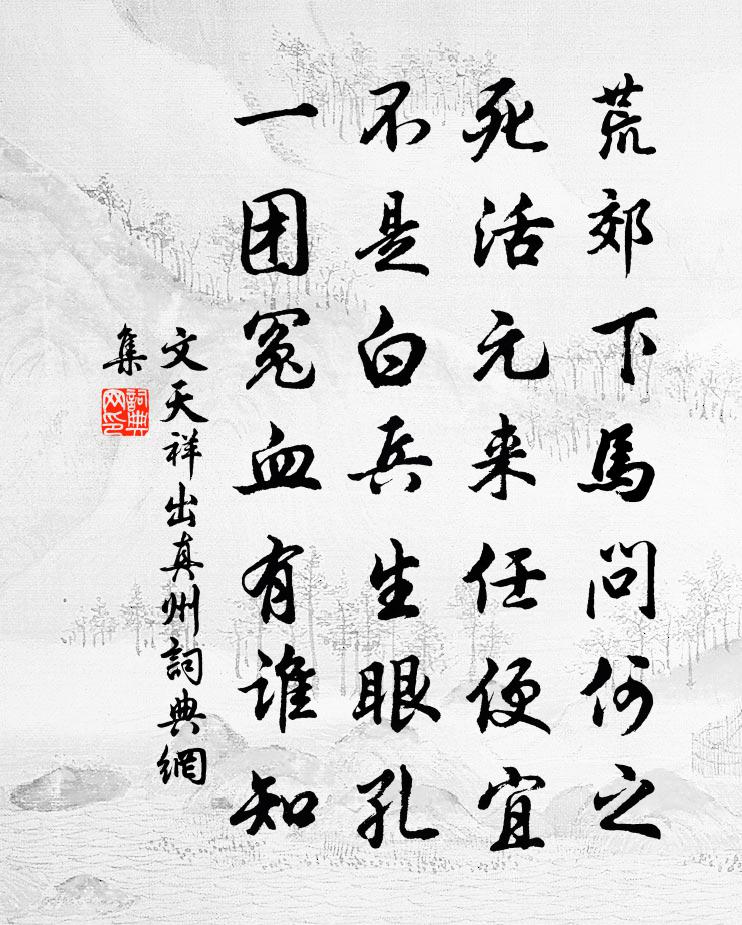 荒郊下馬问何之
死活元来任便宜
不是白兵生眼孔
一团冤血有谁知
文天祥出真州詞典網
集
詞典
网印